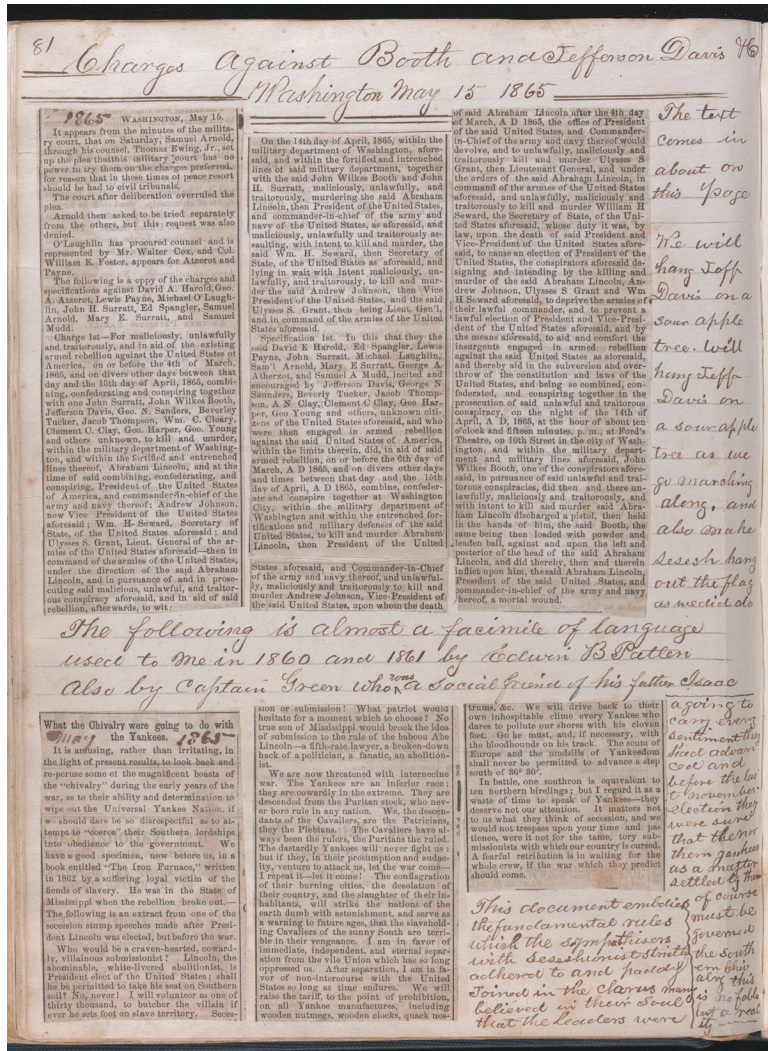 81
Charges Against Booth and Jefferson Davis
Washington May 15 1865
1865
WASHINGTON, May 15.
It appears from the minutes of the milita-
ry court, that on Saturday, Samuel Arnold,
through his counsel, Thomas Ewing, Jr., set
up the plea thatthis military court has no
power to try them on the charges preferred,
for reason that in three times of peace resort
should be had to civil tribunals.
The court after deliberation overruled the
plea.
Arnold then asked to be tried separately
from the others, but this request was also
denied.
O'Laughlin has procured counsel and is
represented by Mr. Walter Cox, and Col.
William E. Foster, appears for Atzerot and
Payne.
The following is a copy of the charges and
specifications against David A. Harold, Geo.
A. Atzerot, Lewis Payne, Michael O'Laugh-
lin, John H. Surratt, Ed Spangler, Samuel
Arnold, Mary E. Surratt, and Samuel
Mudd.
Charge 1st—For maliciously, unlawfully
and traitorously, and in aid of the existing
armed rebellion against the United States of
America, on or before the 4th of March,
1865, and on divers other days between that
day and the 15th day of April, 1865, combin-
ing, confederating and conspiring together
with one John Surratt, John Wilkes Booth,
Jefferson Davis, Geo. N. Sanders, Beverley
Tucker, Jacob Thompson, Wm. C. Cleary,
Clement C. Clay, Geo. Harper, Geo. Young
and others unknown, to kill and murder,
within the military department of Washing-
ton, and within the fortified and entrenched
lines thereof, Abraham Lincoln, and at the
time of said combining, confederating, and
conspiring, President of the United States
of America, and commander-in-chief of the
army and navy thereof; Andrew Johnson,
now Vice President of the United States
aforesaid; Wm. H. Seward, Secretary of
State, of the United States aforesaid; and
Ulysses S. Grant, Lieut. General of the ar-
mies of the United States aforesaid—then in
command of the armies of the United States,
under the direction of the said Abraham
Lincoln, and in pursuance of and in prose-
cuting said malicious, unlawful, and traitor-
ous conspiracy aforesaid, and in aid of said
rebellion, afterwards, to wit:
On the 14th day of April, 1865, within the
military department of Washington, afore-
said, and within the fortified and intrenched
lines of said military department, together
with the said John Wilkes Booth and John
H. Surratt, maliciously, unlawfully, and
traitorously, murdering the said Abraham
Lincoln, then President of the United States,
and commander-in-chief of the army and
navy of the United States, as aforesaid, and
maliciously, unlawfully and traitorously as-
saulting, with intent to kill and murder, the
said Wm. H. Seward, then Secretary of State,
of the United States as aforesaid, and
lying in wait with intent maliciously, un-
lawfully, and traitorously, to kill and mur-
der the said Andrew Johnson, then Vice
President of the United States, and the said
Ulysses S. Grant, then being Lieut. Gen'l,
and in command of the armies of the United
States aforesaid.
Specification 1st. In this that they the
said David E Harold, Ed Spangler, Lewis
Payne, John Surratt, Michael Laughlin,
Sam'l Arnold, Mary E Surratt, George A
Atherzot, and Samuel A Mudd, incited and
encouraged by Jefferson Davis, George N
Saunders, Beverly Tucker, Jacob Thomp-
son, A. N. Clay, Clement C Clay, Geo Har-
per, Geo Young and others, unknown citi-
zens of the United States aforesaid, and who
were then engaged in armed rebellion
against the said United States of America,
within the limits therein, did, in aid of said
armed rebellion, on or before the 6th day of
March, A D 1865, and on divers other days
and times between that day and the 15th
day of April, A D 1865, combine, confeder-
ate and conspire together at Washington
City, within the military department of
Washington and within the entrenched for-
tifications and military defenses of the said
United States, to kill and murder Abraham
Lincoln, then President of the United
States aforesaid, and Commander-in-Chief
of the army and navy thereof, and unlawful-
ly, maliciously and traitorously to kill and
murder Andrew Johnson, Vice-President of
the said United States, upon whom the death
of said Abraham Lincoln after the 4th day
of March, A D 1865, the office of President
of the said United States, and Commander-
in-Chief of the army and navy thereof would
devolve, and to unlawfully, maliciously and
traitorously kill and murder Ulysses S
Grant, then Lieutenant General, and under
the orders of the said Abraham Lincoln, in
command of the armies of the United States
aforesaid, and unlawfully, maliciously and
traitorously to kill and murder William H
Seward, the Secretary of State, of the Uni-
ted States aforesaid, whose duty it was, by
law, upon the death of said President and
Vice-President of the United States afore-
said, to cause an election of President of the
United States, the conspirators aforesaid de-
signing and intending by the killing and
murder of the said Abraham Lincoln, An-
drew Johnson, Ulysses S Grant and Wm
H Seward aforesaid, to deprive the armies of
their lawful commander, and to prevent a
lawful election of President and Vice-Presi-
dent of the United States aforesaid, and by
the means aforesaid, to aid and comfort the
insurgents engaged in armed rebellion
against the said United States as aforesaid,
and thereby aid in the subversion and over-
throw of the constitution and laws of the
United States, and being so combined, con-
federated, and conspiring together in the
prosecution of said unlawful and traitorous
conspiracy, on the night of the 14th of
April, A D, 1865, at the hour of about ten
o'clock and fifteen minutes, p. m., at Ford's
Theatre, on 10th Street in the city of Wash-
ington, and within the military depart-
ment and military lines aforesaid, John
Wilkes Booth, one of the conspirators afore-
said, in pursuance of said unlawful and trai-
torous conspiracies, did then and there un-
lawfully, maliciously and traitorously, and
with intent to kill and murder said Abra-
ham Lincoln discharged a pistol, then held
in the hands of him, the said Booth, the
same being then loaded with powder and
leaden ball, against and upon the left and
posterior of the head of the said Abraham
Lincoln, and did thereby, then and therein
inflict upon him, the said Abraham Lincoln,
President of the said United States, and
commander-in-chief of the army and navy
thereof, a mortal wound.
The text
comes in
about on
this page
We will
hang Jeff
Davis on a
sour apple
tree. will
hang Jeff
Davis on
a sour apple
tree as we
go marching
along, and
also make
sesesh hang
out the flag
as we did do
The following is almost a facimile of language
used to me in 1860 and 1861 by Edwin B Patten
Also by Captain Green who was a social friend of his father Isaac
What the Chivalry were going to do with
the Yankees.
May 1865
It is amusing, rather than irritating, in
the light of present results, to look back and
re-peruse some of the magnificent boasts of
the "chivalry" during the early years of the
war, as to their ability and determination to
wipe out the Universal Yankee Nation, if
we should dare be so disrespectful as to at-
tempt to "coerce" their Southern lordships
into obedience to the government. We
have a good specimen, now before us, in a
book entitled "The Iron Furnace," written
in 1862 by a suffering loyal victim of the
fiends of slavery. He was in the State of
Mississippi when the rebellion broke out.—
The following is an extract from one of the
secession stump speeches made after Presi-
dent Lincoln was elected, but before the war.
Who would be a craven-hearted, coward-
ly, villainous submissionist? Lincoln, the
abominable, white-livered abolitionist, is
President elect of the United States; shall
he be permitted to take his seat on Southern
soil? No, never! I will volunteer as one of
thirty thousand, to butcher the villain if
ever he sets foot on slave territory. Seces-
sion or submission! What patriot would
hesitate for a moment which to choose? No
true son of Mississippi would brook the idea
of submission to the rule of the baboon Abe
Lincoln—a fifth-rate lawyer, a broken-down
back of a politician, a fanatic, an abolition-
ist.
We are now threatened with internecine
war. The Yankees are an inferior race;
they are cowardly in the extreme. They are
descended from the Puritan stock, who nev-
er bore rule in any nation. We, the descen-
dants of the Cavaliers, are the Patricians,
they the Plebians. The Cavaliers have al-
ways been the rulers, the Puritans the ruled.
The dastardly Yankees will never fight us;
but if they, in their presumption and audac-
ity, venture to attack us, let the war come—
I repeat it—let it come! The conflagration
of their burning cities, the desolation of their
country, and the slaughter of their in-
habitants, will strike the nations of the
earth dumb with astonishment, and serve as
a warning to future ages, that the slavehold-
ing Cavaliers of the sunny South are terri-
ble in their vengeance. I am in favor of
immediate, independent, and eternal separ-
ation from the vile Union which has so long
oppressed us. After separation, I am in fa-
vor of non-intercourse with the United
States so long as time endures. We will
raise the tariff, to the point of prohibition,
on all Yankee manufactures, including
wooden nutmegs, wooden clocks, quack nos-
trums, &c. We will drive back to their
own inhospitable clime every Yankee who
dares to pollute our shores with his cloven
feet. Go he must, and, if necessary, with
the bloodhounds on his track. The scum of
Europe and the mudsills of Yankeedom
shall never be permitted to advance a step
south of 36° 30'.
In battle, one southron is equivalent to
ten northern hirelings; but I regard it as a
waste of time to speak of Yankees—they
deserve not our attention. It matters not
to us what they think of secession, and we
would not trespass upon your time and pa-
tience, were it not for the tame, tory sub-
missionists with which our country is cursed.
A fearful retribution is in waiting for the
whole crew, if the war which they predict
should come.
This document embodies
the fundamental rules
which the sympathisers
with Seseshionist strictly
adhered to and
Joined in the Chorus many
believed in their Soul
that the Leaders were
agoing to
carry every
sentiment they
had advan
ced and
before the las
t November
Election they
were sure
that the nor
thern yankees
as a matter
settled by them
of course
must be
governed
the South
ern Chiv
alry this
is no fable
but a real
ity